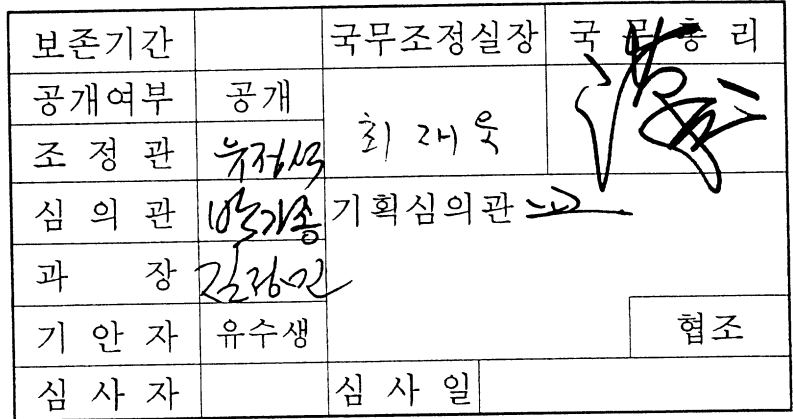 보존기간 국무조정실장 국무총리
공개여부 공개
최재욱
조정관 유정석
심의관 박기종 기획심의관
과 장 김정민
기안자 유수생 협조
심사자 심사일